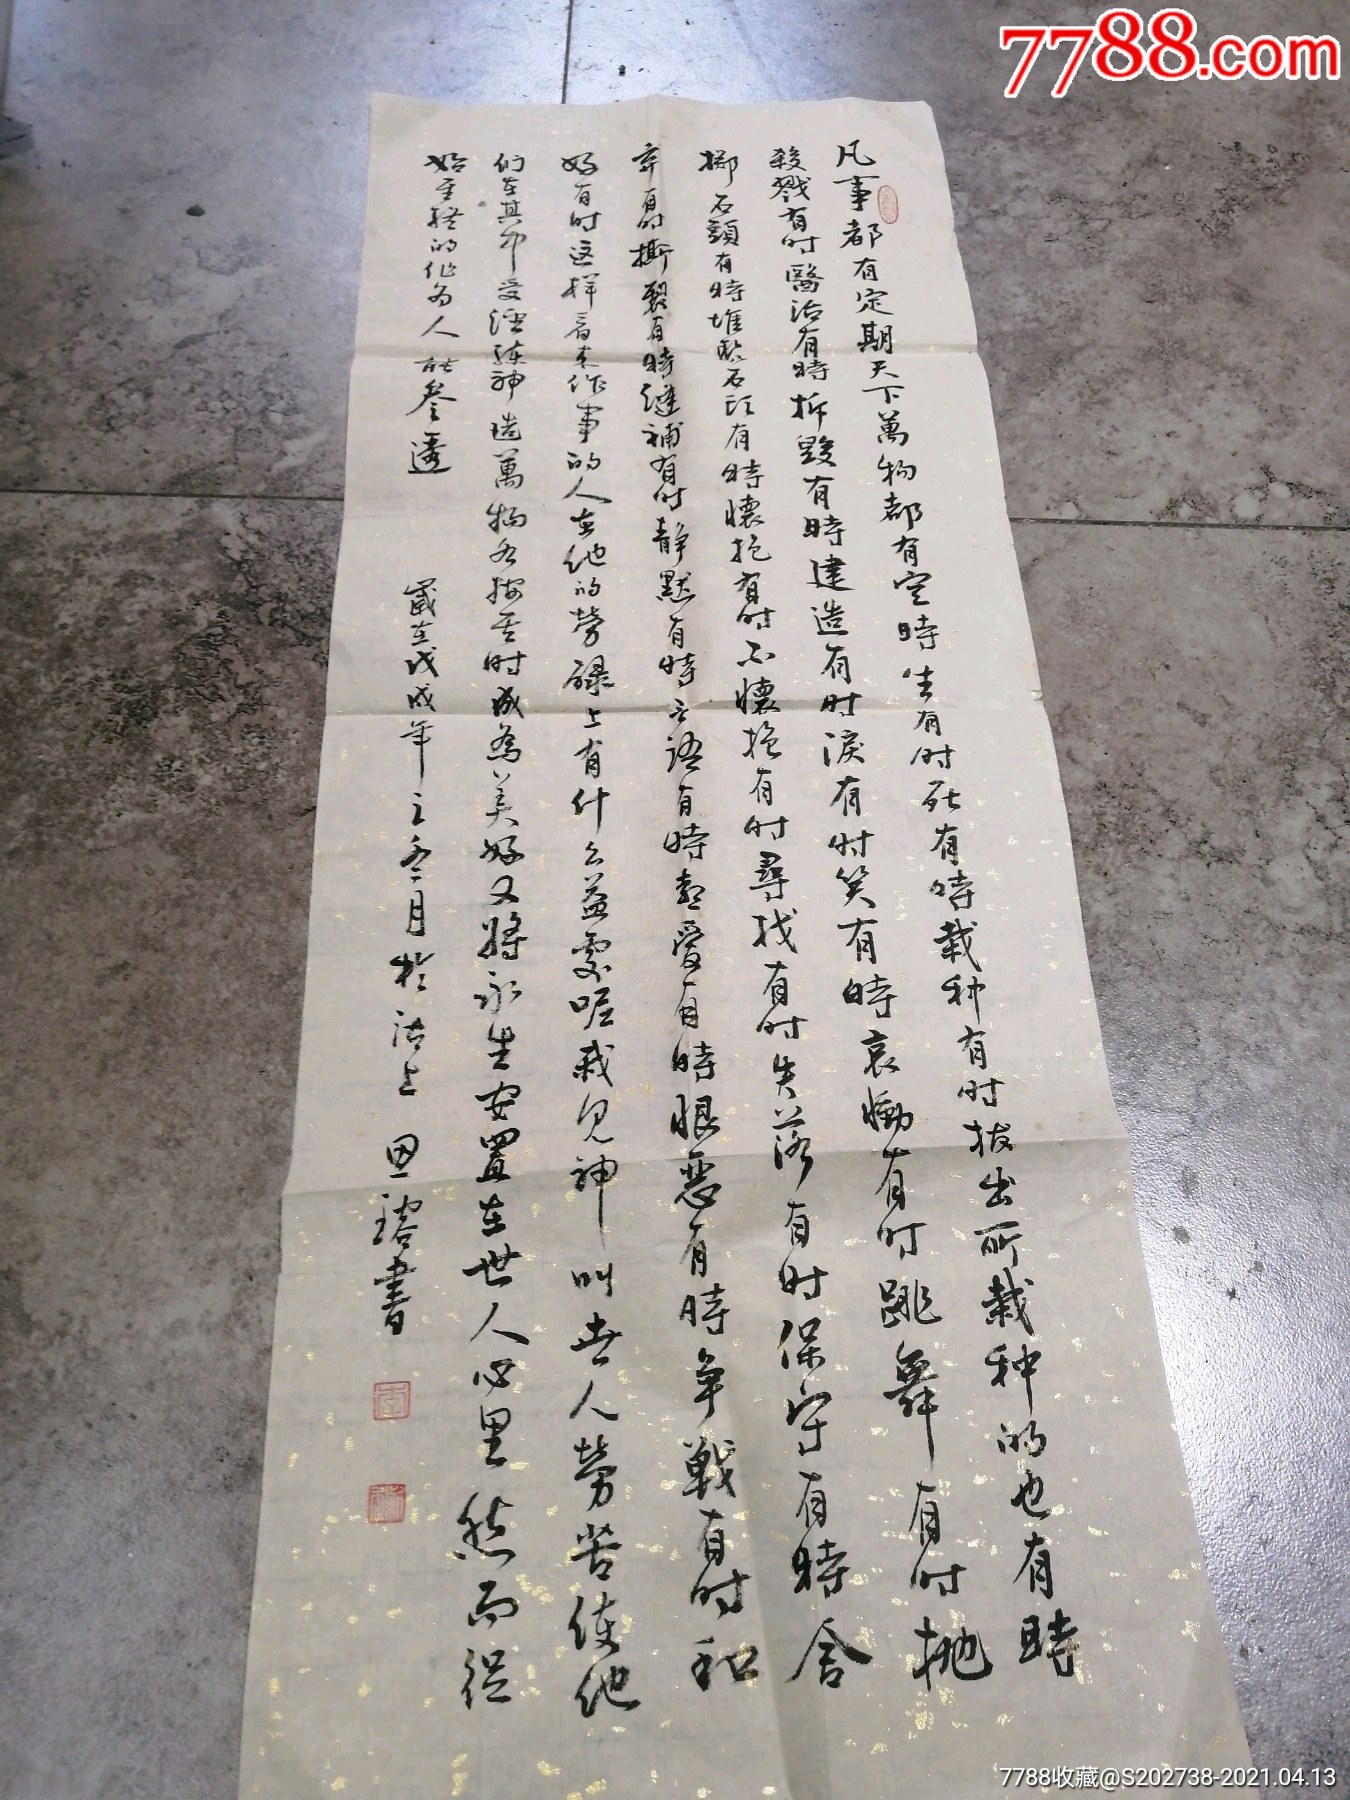 7788.com
凡事都有定期天下萬物都有定時生有时死有時栽种有时拔出所栽种的也有時
殺戮有时醫治有時拆毀有時建造有时淚有时笑有時哀慟有时跳舞有时拋
擲石頭有時堆聚石头有時懷抱有时不懷抱有时尋找有时失落有时保守有時舍
弃有时撕裂有時縫補有时静默有時言語有時喜愛有時恨惡有時争戰有时和
好有时这样看来作事的人在他的勞碌上有什么益處呢我见神叫世人勞苦使他
们在其中受经练神造萬物各按其时成為美好又將永生安置在世人心里然而從
始至终的作为人能參透
歲在戊戌年之冬月於沽上 思瑢書
7788收藏@S202738-2021.04.13